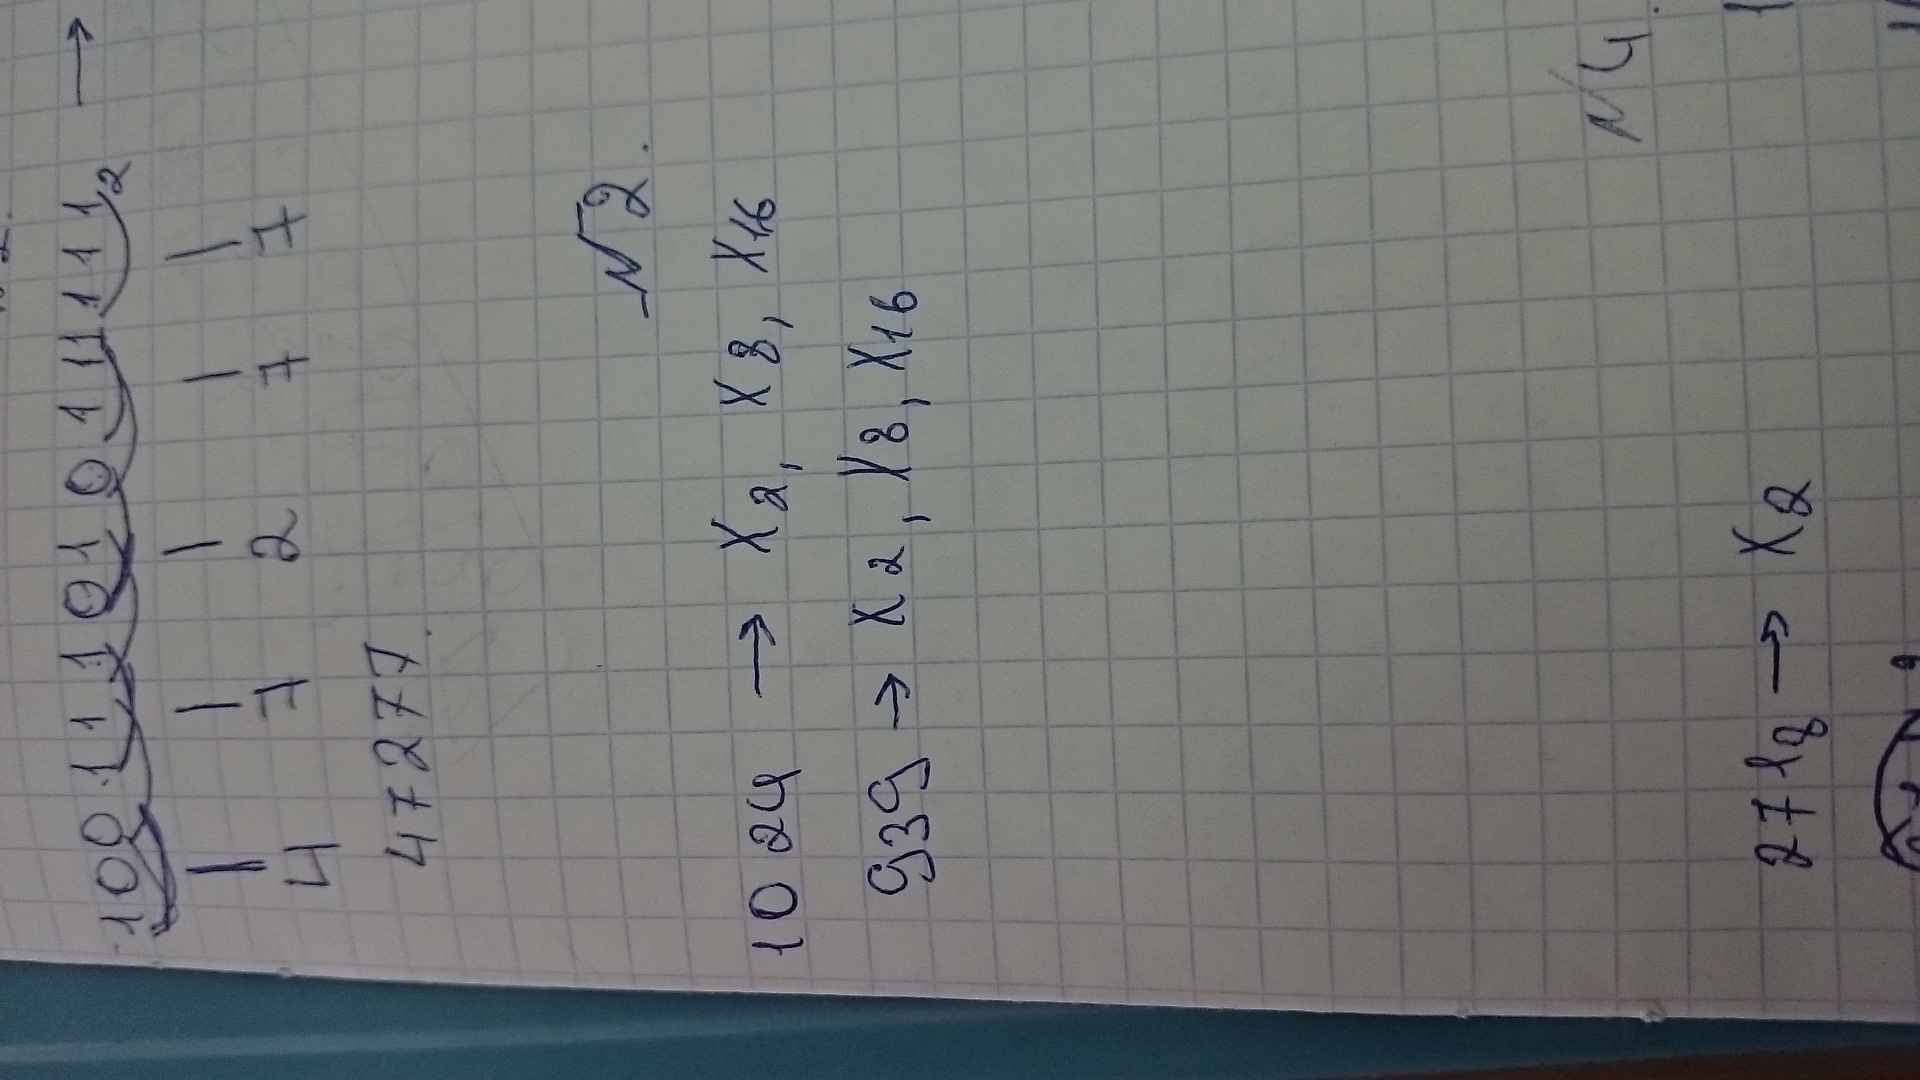 100 111 010 111 111₂ →
4 7 2 7 7
47277.
№2.
1024 → X₂, X₈, X₁₆
939 → X₂, X₈, X₁₆
№4.
271₈ → X₂